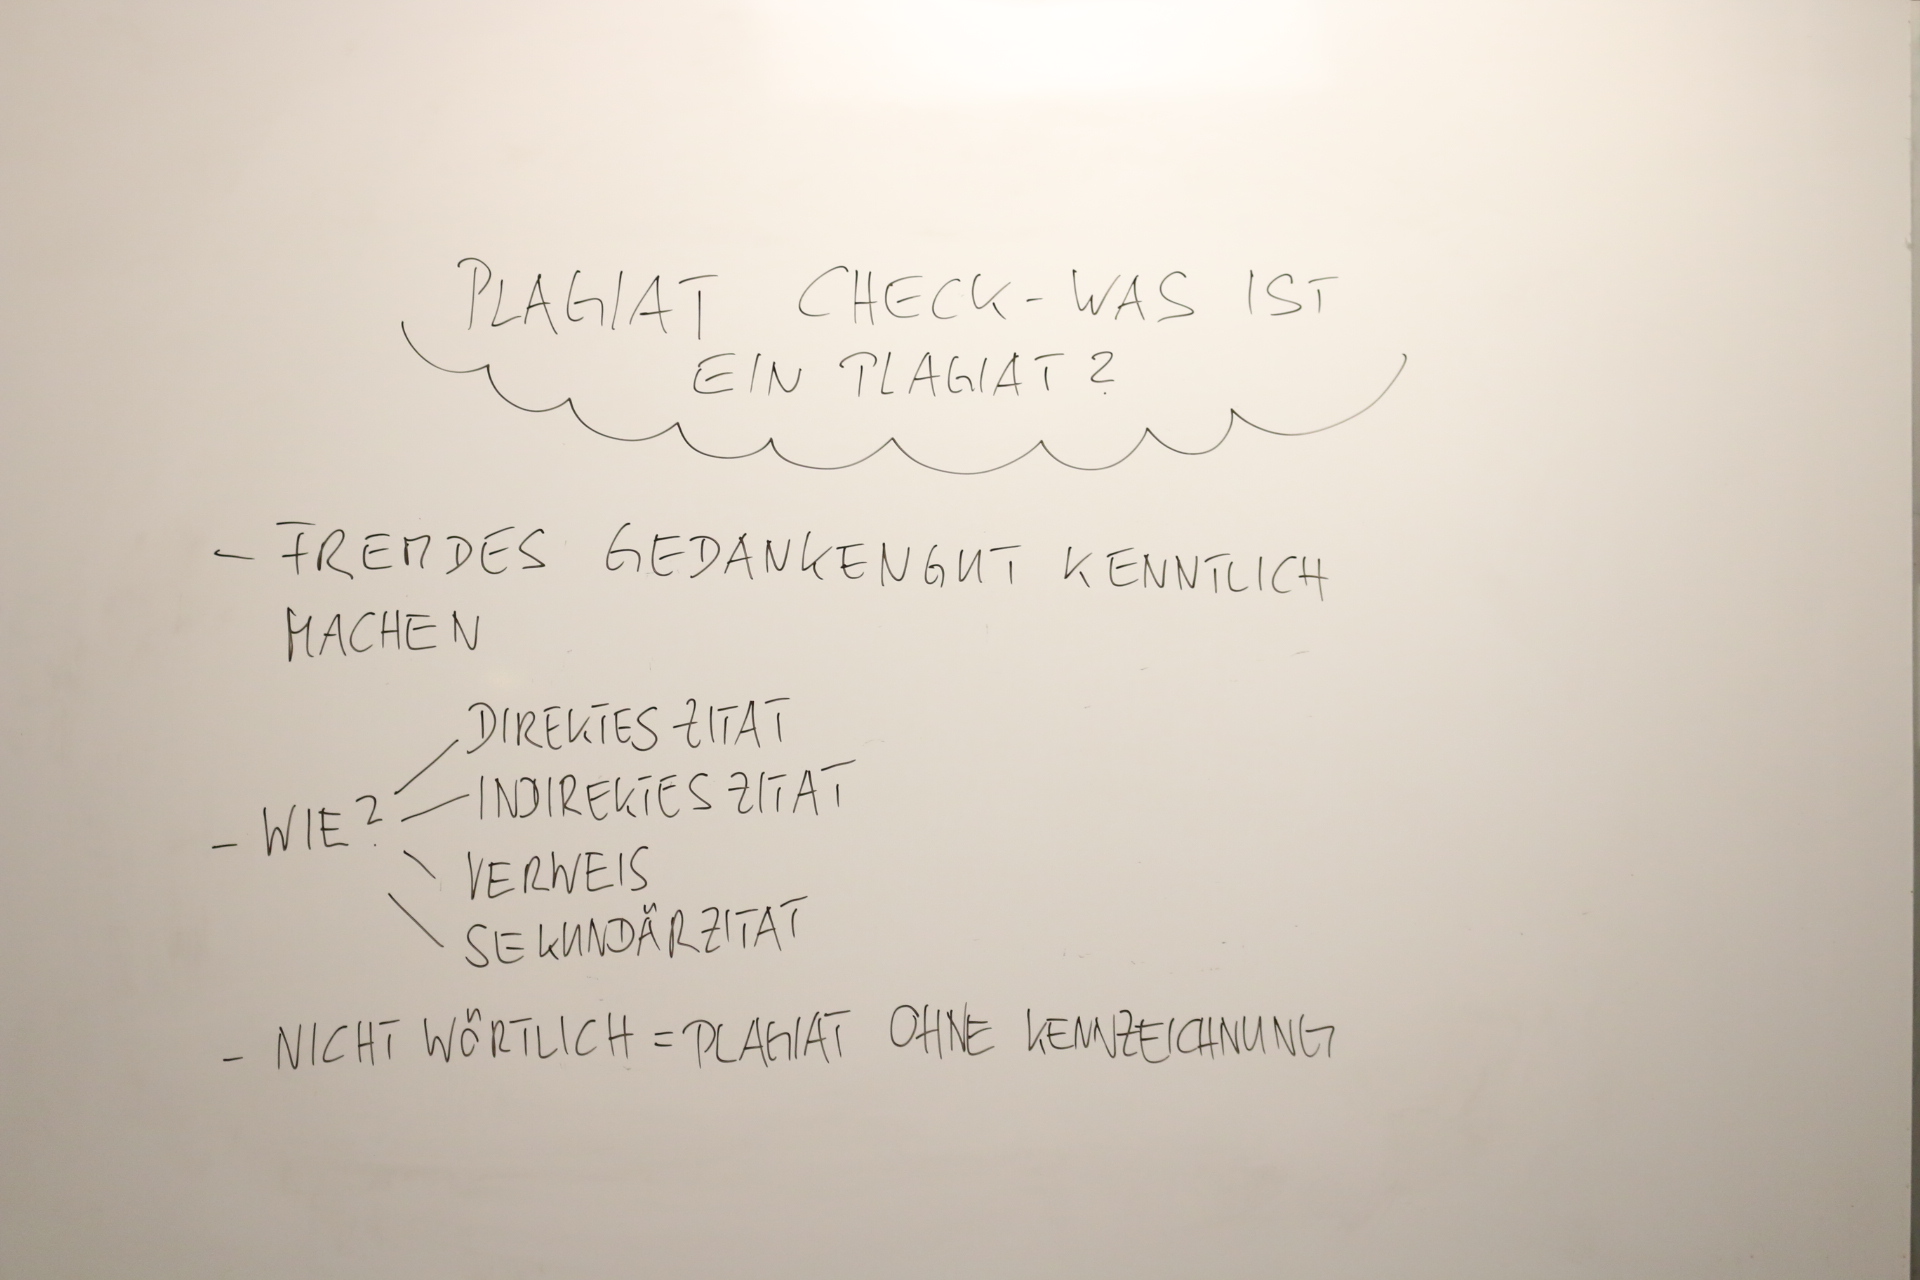 PLAGIAT CHECK - WAS IST
EIN PLAGIAT?
- FREMDES GEDANKENGUT KENNTLICH
MACHEN
- WIE?
DIREKTES ZITAT
INDIREKTES ZITAT
VERWEIS
SEKUNDÄRZITAT
- NICHT WÖRTLICH = PLAGIAT OHNE KENNZEICHNUNG